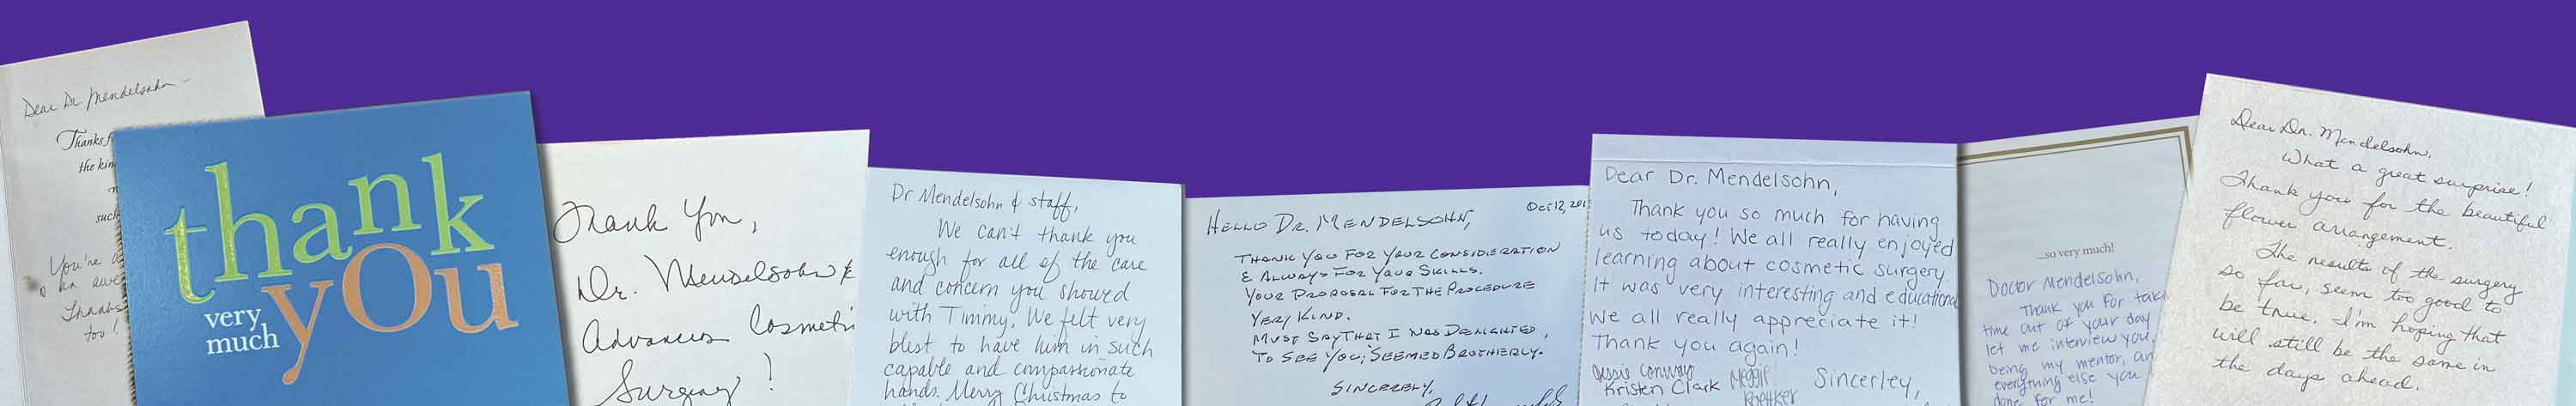 Dear Dr. Mendelsohn -
Thanks f
the kin
such
You're a
an awe
Thanks
too!
thank
very
much
you
Thank You,
Dr. Mendelsohn &
Advances Cosmeti
Surgery!
Dr Mendelsohn & staff,
We can't thank you
enough for all of the care
and concern you showed
with Timmy. We felt very
blest to have him in such
capable and compassionate
hands. Merry Christmas to
Oct 12, 201
HELLO DR. MENDELSOHN,
THANK YOU FOR YOUR CONSIDERATION
& ALWAYS FOR YOUR SKILLS.
YOUR PROPOSAL FOR THE PROCEDURE
VERY KIND.
MUST SAY THAT I WAS DELIGHTED,
TO SEE YOU; SEEMED BROTHERLY.
SINCERELY,
Dear Dr. Mendelsohn,
Thank you so much for having
us today! We all really enjoyed
learning about cosmetic surgery.
It was very interesting and educational
We all really appreciate it!
Thank you again!
Jessie Conway
Kristen Clark
Meggie
Sincerley,
...so very much!
Doctor Mendelsohn,
Thank you for taki
time out of your day
let me interview you,
being my mentor, an
everything else you
done for me!
Dear Dr. Mendelsohn,
What a great surprise!
Thank you for the beautiful
flower arrangement.
The results of the surgery
so far, seem too good to
be true. I'm hoping that
will still be the same in
the days ahead.